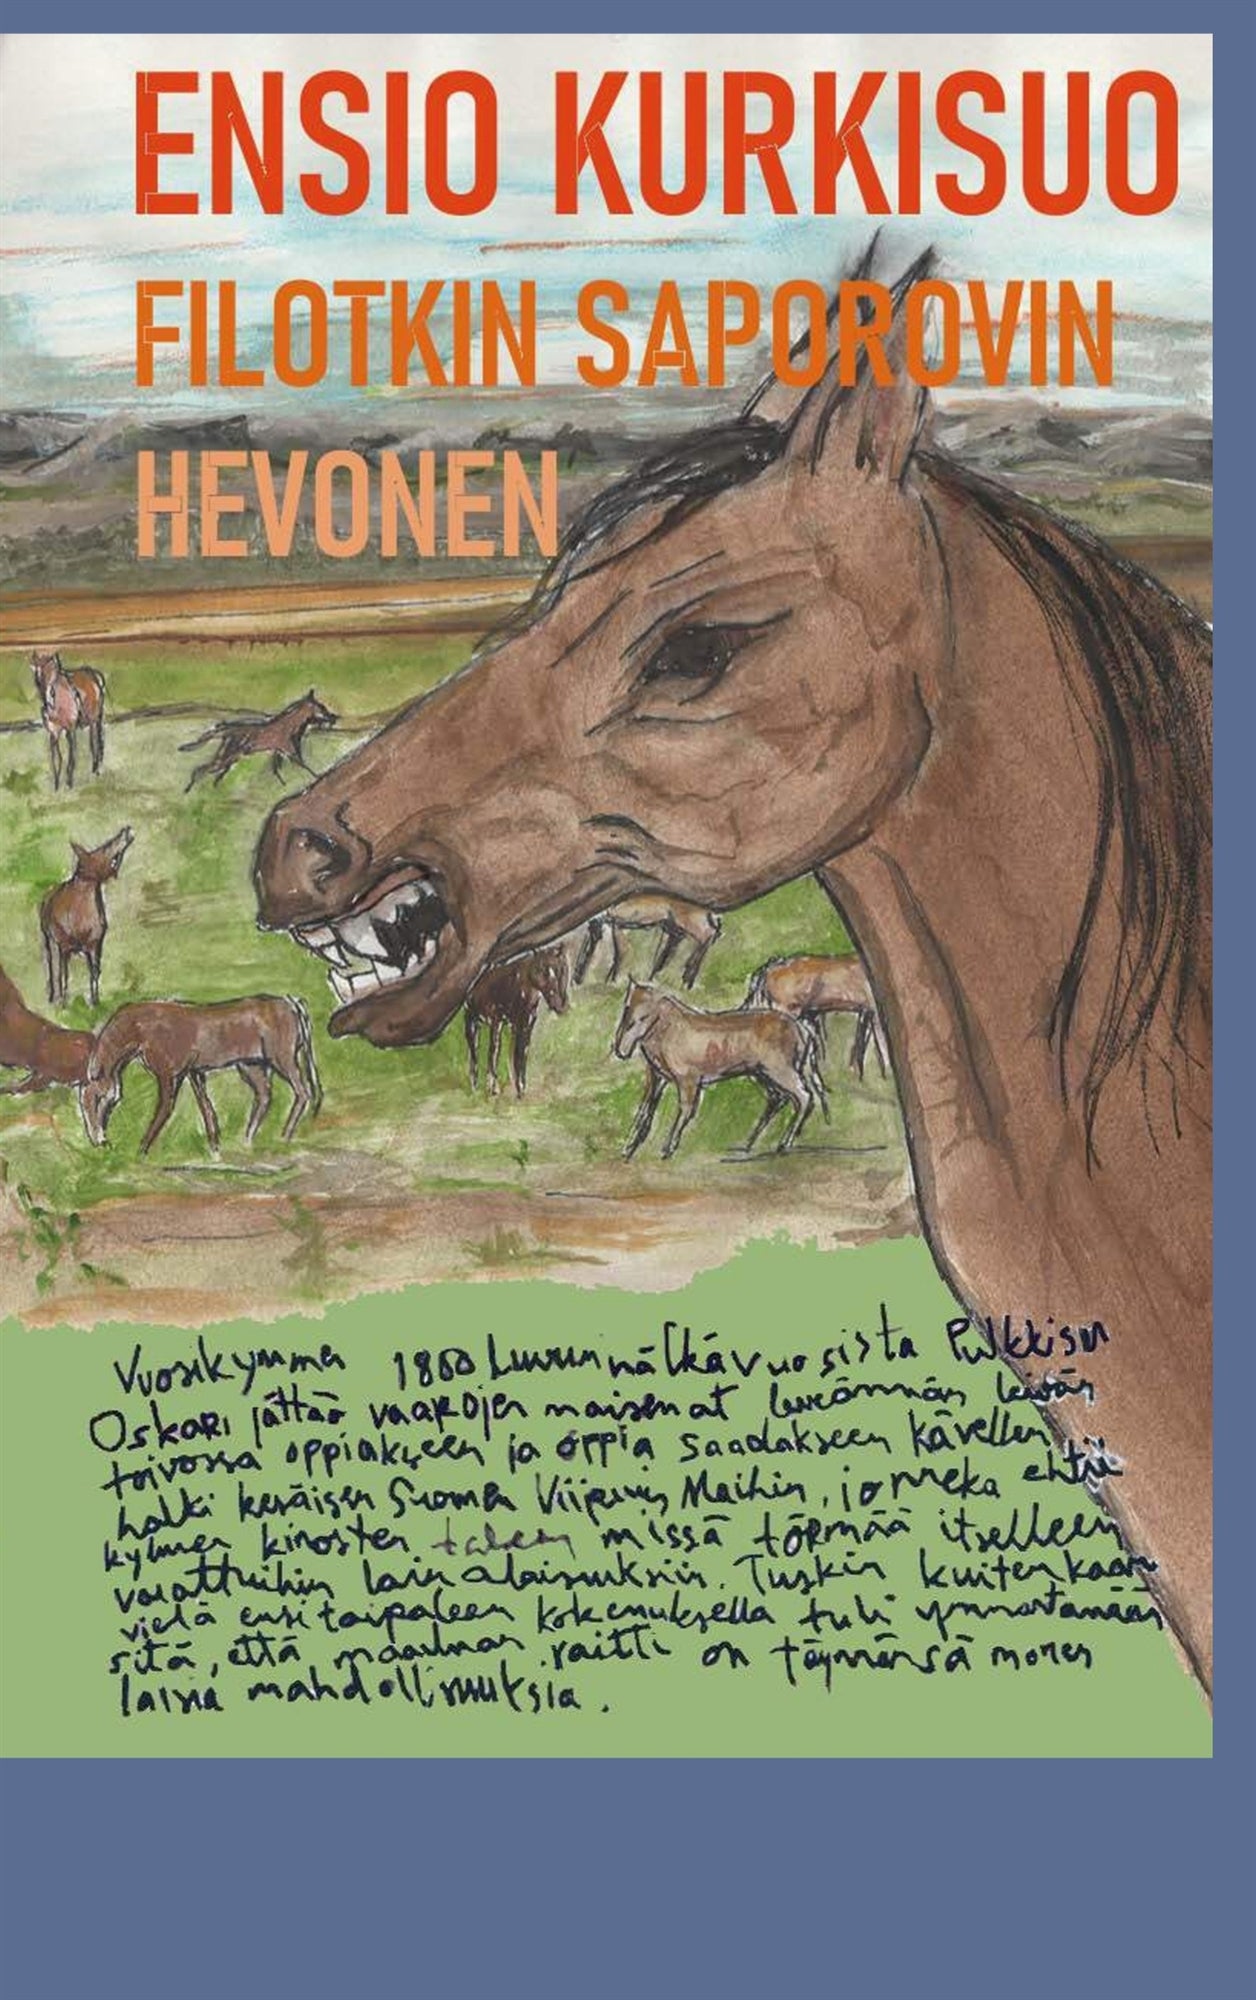 ENSIO KURKISUO
FILOTKIN SAPOROVIN
HEVONEN
Vuosikymmen 1860 luvun nälkävuosista Pulkkisen
Oskari jättää vaarojen maisemat leveämmän leivän
toivossa oppiakseen ja oppia saadakseen kävellen
halki keväisen Suomen Viipurin Maihin, jonneka ehtii
kylmien kinosten missä törmää itselleen
varattuihin lain alaisuuksiin. Tuskin kuitenkaan
vielä ensi taipaleen kokemuksella tuli ymmärtämään
sitä, että maailman raitti on täynnänsä monen
laisia mahdollisuuksia.